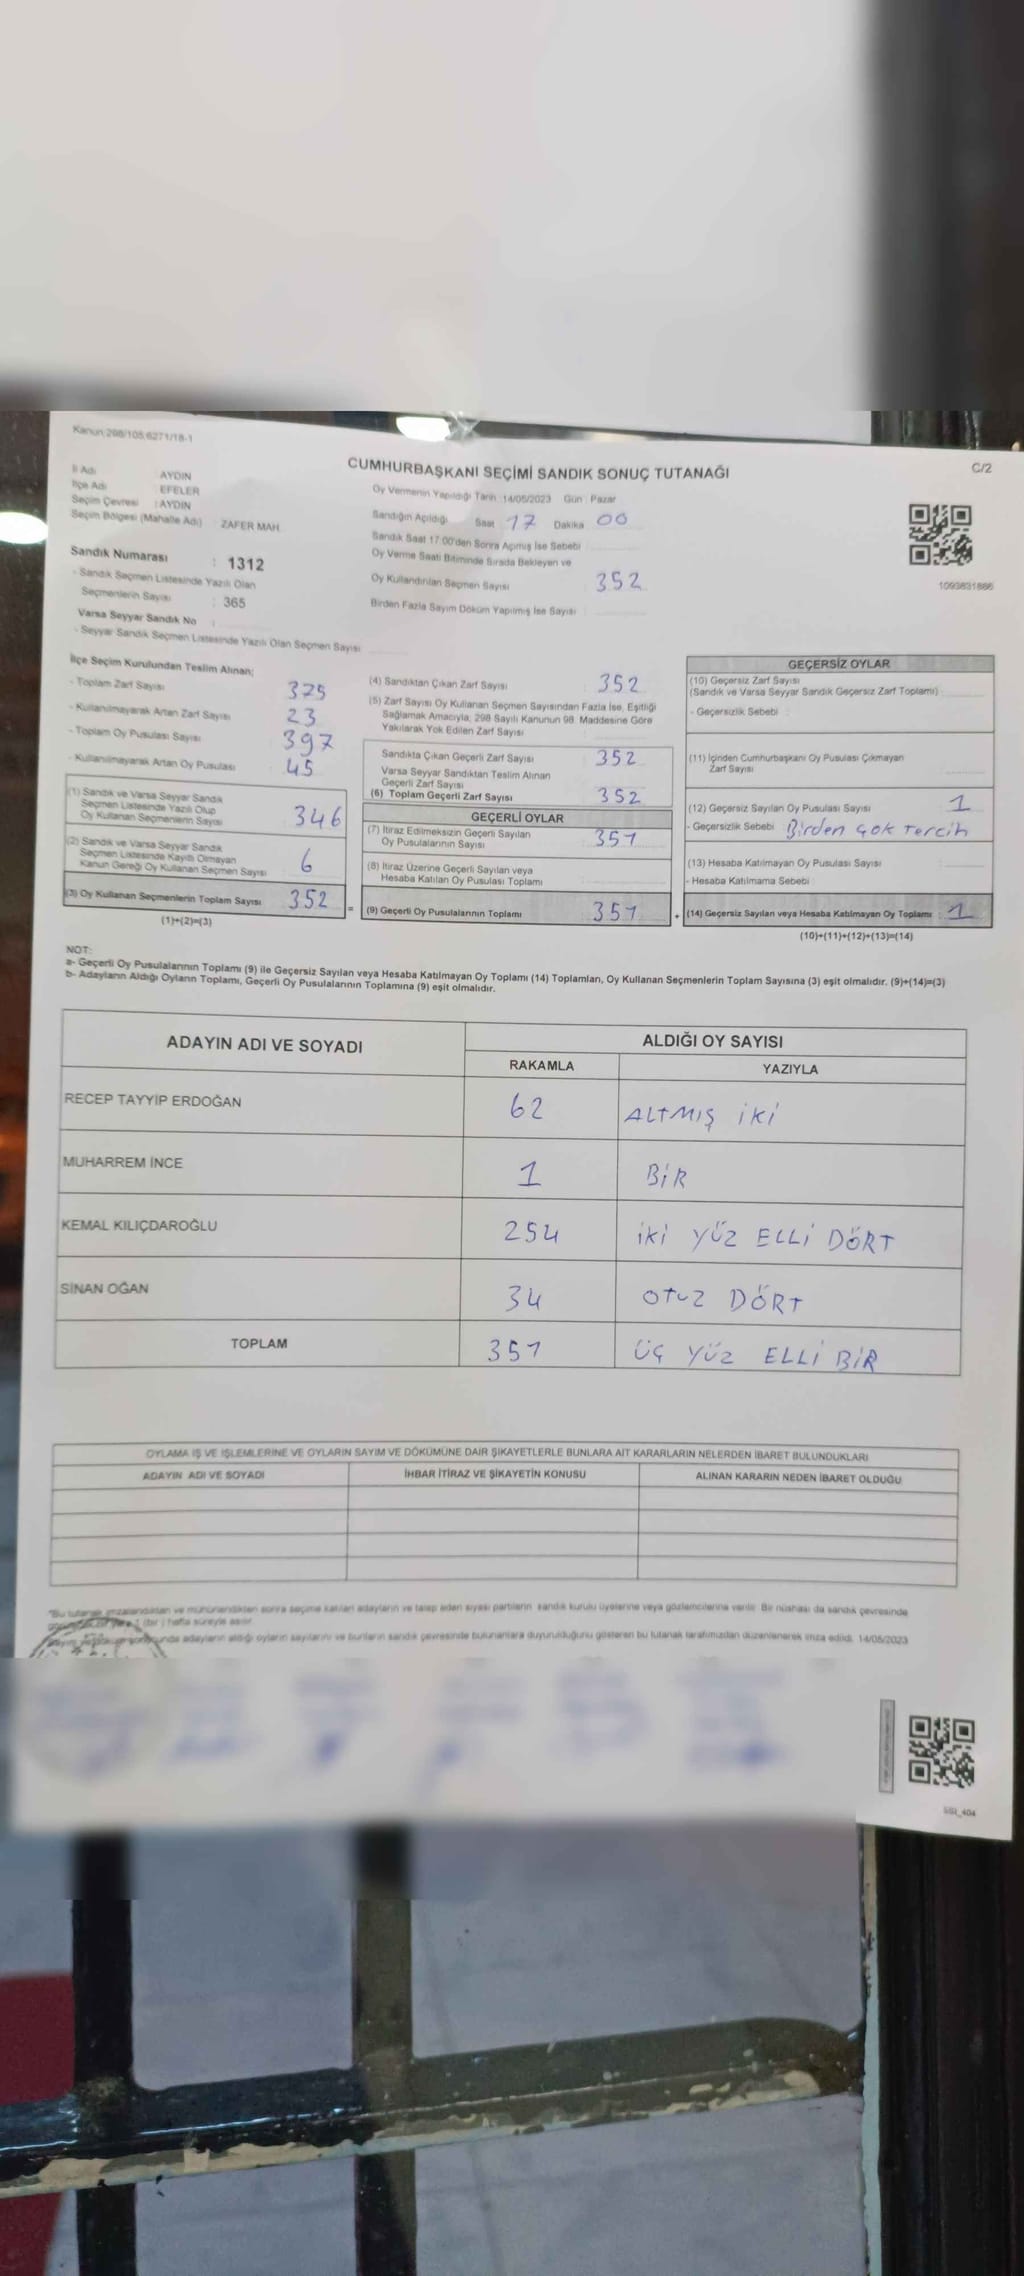 Kanun:298/105,6271/18-1
C/2
CUMHURBAŞKANI SEÇİMİ SANDIK SONUÇ TUTANAĞI
İl Adı : AYDIN
İlçe Adı : EFELER
Seçim Çevresi : AYDIN
Seçim Bölgesi (Mahalle Adı) : ZAFER MAH.
Oy Vermenin Yapıldığı Tarih :14/05/2023 Gün : Pazar
Sandığın Açıldığı Saat 17 Dakika 00
Sandık Saat 17:00'den Sonra Açılmış İse Sebebi
Oy Verme Saati Bitiminde Sırada Bekleyen ve
Oy Kullandırılan Seçmen Sayısı 352
Birden Fazla Sayım Döküm Yapılmış İse Sayısı :
1093831866
Sandık Numarası : 1312
- Sandık Seçmen Listesinde Yazılı Olan
Seçmenlerin Sayısı : 365
Varsa Seyyar Sandık No :
- Seyyar Sandık Seçmen Listesinde Yazılı Olan Seçmen Sayısı
İlçe Seçim Kurulundan Teslim Alınan;
- Toplam Zarf Sayısı : 375
- Kullanılmayarak Artan Zarf Sayısı : 23
- Toplam Oy Pusulası Sayısı : 397
- Kullanılmayarak Artan Oy Pusulası : 45
(1) Sandık ve Varsa Seyyar Sandık
Seçmen Listesinde Yazılı Olup
Oy Kullanan Seçmenlerin Sayısı 346
(2) Sandık ve Varsa Seyyar Sandık
Seçmen Listesinde Kayıtlı Olmayan
Kanun Gereği Oy Kullanan Seçmen Sayısı 6
(3) Oy Kullanan Seçmenlerin Toplam Sayısı 352 =
(1)+(2)=(3)
(4) Sandıktan Çıkan Zarf Sayısı : 352
(5) Zarf Sayısı Oy Kullanan Seçmen Sayısından Fazla İse, Eşitliği
Sağlamak Amacıyla; 298 Sayılı Kanunun 98. Maddesine Göre
Yakılarak Yok Edilen Zarf Sayısı :
Sandıkta Çıkan Geçerli Zarf Sayısı : 352
Varsa Seyyar Sandıktan Teslim Alınan
Geçerli Zarf Sayısı
(6) Toplam Geçerli Zarf Sayısı : 352
GEÇERLİ OYLAR
(7) İtiraz Edilmeksizin Geçerli Sayılan
Oy Pusulalarının Sayısı : 351
(8) İtiraz Üzerine Geçerli Sayılan veya
Hesaba Katılan Oy Pusulası Toplamı :
(9) Geçerli Oy Pusulalarının Toplamı : 351 +
GEÇERSİZ OYLAR
(10) Geçersiz Zarf Sayısı
(Sandık ve Varsa Seyyar Sandık Geçersiz Zarf Toplamı)
- Geçersizlik Sebebi :
(11) İçinden Cumhurbaşkanı Oy Pusulası Çıkmayan
Zarf Sayısı
(12) Geçersiz Sayılan Oy Pusulası Sayısı : 1
- Geçersizlik Sebebi : Birden çok tercih
(13) Hesaba Katılmayan Oy Pusulası Sayısı :
- Hesaba Katılmama Sebebi :
(14) Geçersiz Sayılan veya Hesaba Katılmayan Oy Toplamı : 1
(10)+(11)+(12)+(13)=(14)
NOT:
a- Geçerli Oy Pusulalarının Toplamı (9) ile Geçersiz Sayılan veya Hesaba Katılmayan Oy Toplamı (14) Toplamları, Oy Kullanan Seçmenlerin Toplam Sayısına (3) eşit olmalıdır. (9)+(14)=(3)
b- Adayların Aldığı Oyların Toplamı, Geçerli Oy Pusulalarının Toplamına (9) eşit olmalıdır.
ADAYIN ADI VE SOYADI
ALDIĞI OY SAYISI
RAKAMLA YAZIYLA
RECEP TAYYİP ERDOĞAN 62 ALTMIŞ İKİ
MUHARREM İNCE 1 BİR
KEMAL KILIÇDAROĞLU 254 İKİ YÜZ ELLİ DÖRT
SİNAN OĞAN 34 OTUZ DÖRT
TOPLAM 351 ÜÇ YÜZ ELLİ BİR
OYLAMA İŞ VE İŞLEMLERİNE VE OYLARIN SAYIM VE DÖKÜMÜNE DAİR ŞİKAYETLERLE BUNLARA AİT KARARLARIN NELERDEN İBARET BULUNDUKLARI
ADAYIN ADI VE SOYADI İHBAR İTİRAZ VE ŞİKAYETİN KONUSU ALINAN KARARIN NEDEN İBARET OLDUĞU
*Bu tutanak imzalandıktan ve mühürlendikten sonra seçime katılan adayların ve talep eden siyasi partilerin sandık kurulu üyelerine veya gözlemcilerine verilir. Bir nüshası da sandık çevresinde
1 (bir) hafta süreyle asılır.
adayların aldığı oyların sayılarını ve bunların sandık çevresinde bulunanlara duyurulduğunu gösteren bu tutanak tarafımızdan düzenlenerek imza edildi. 14/05/2023